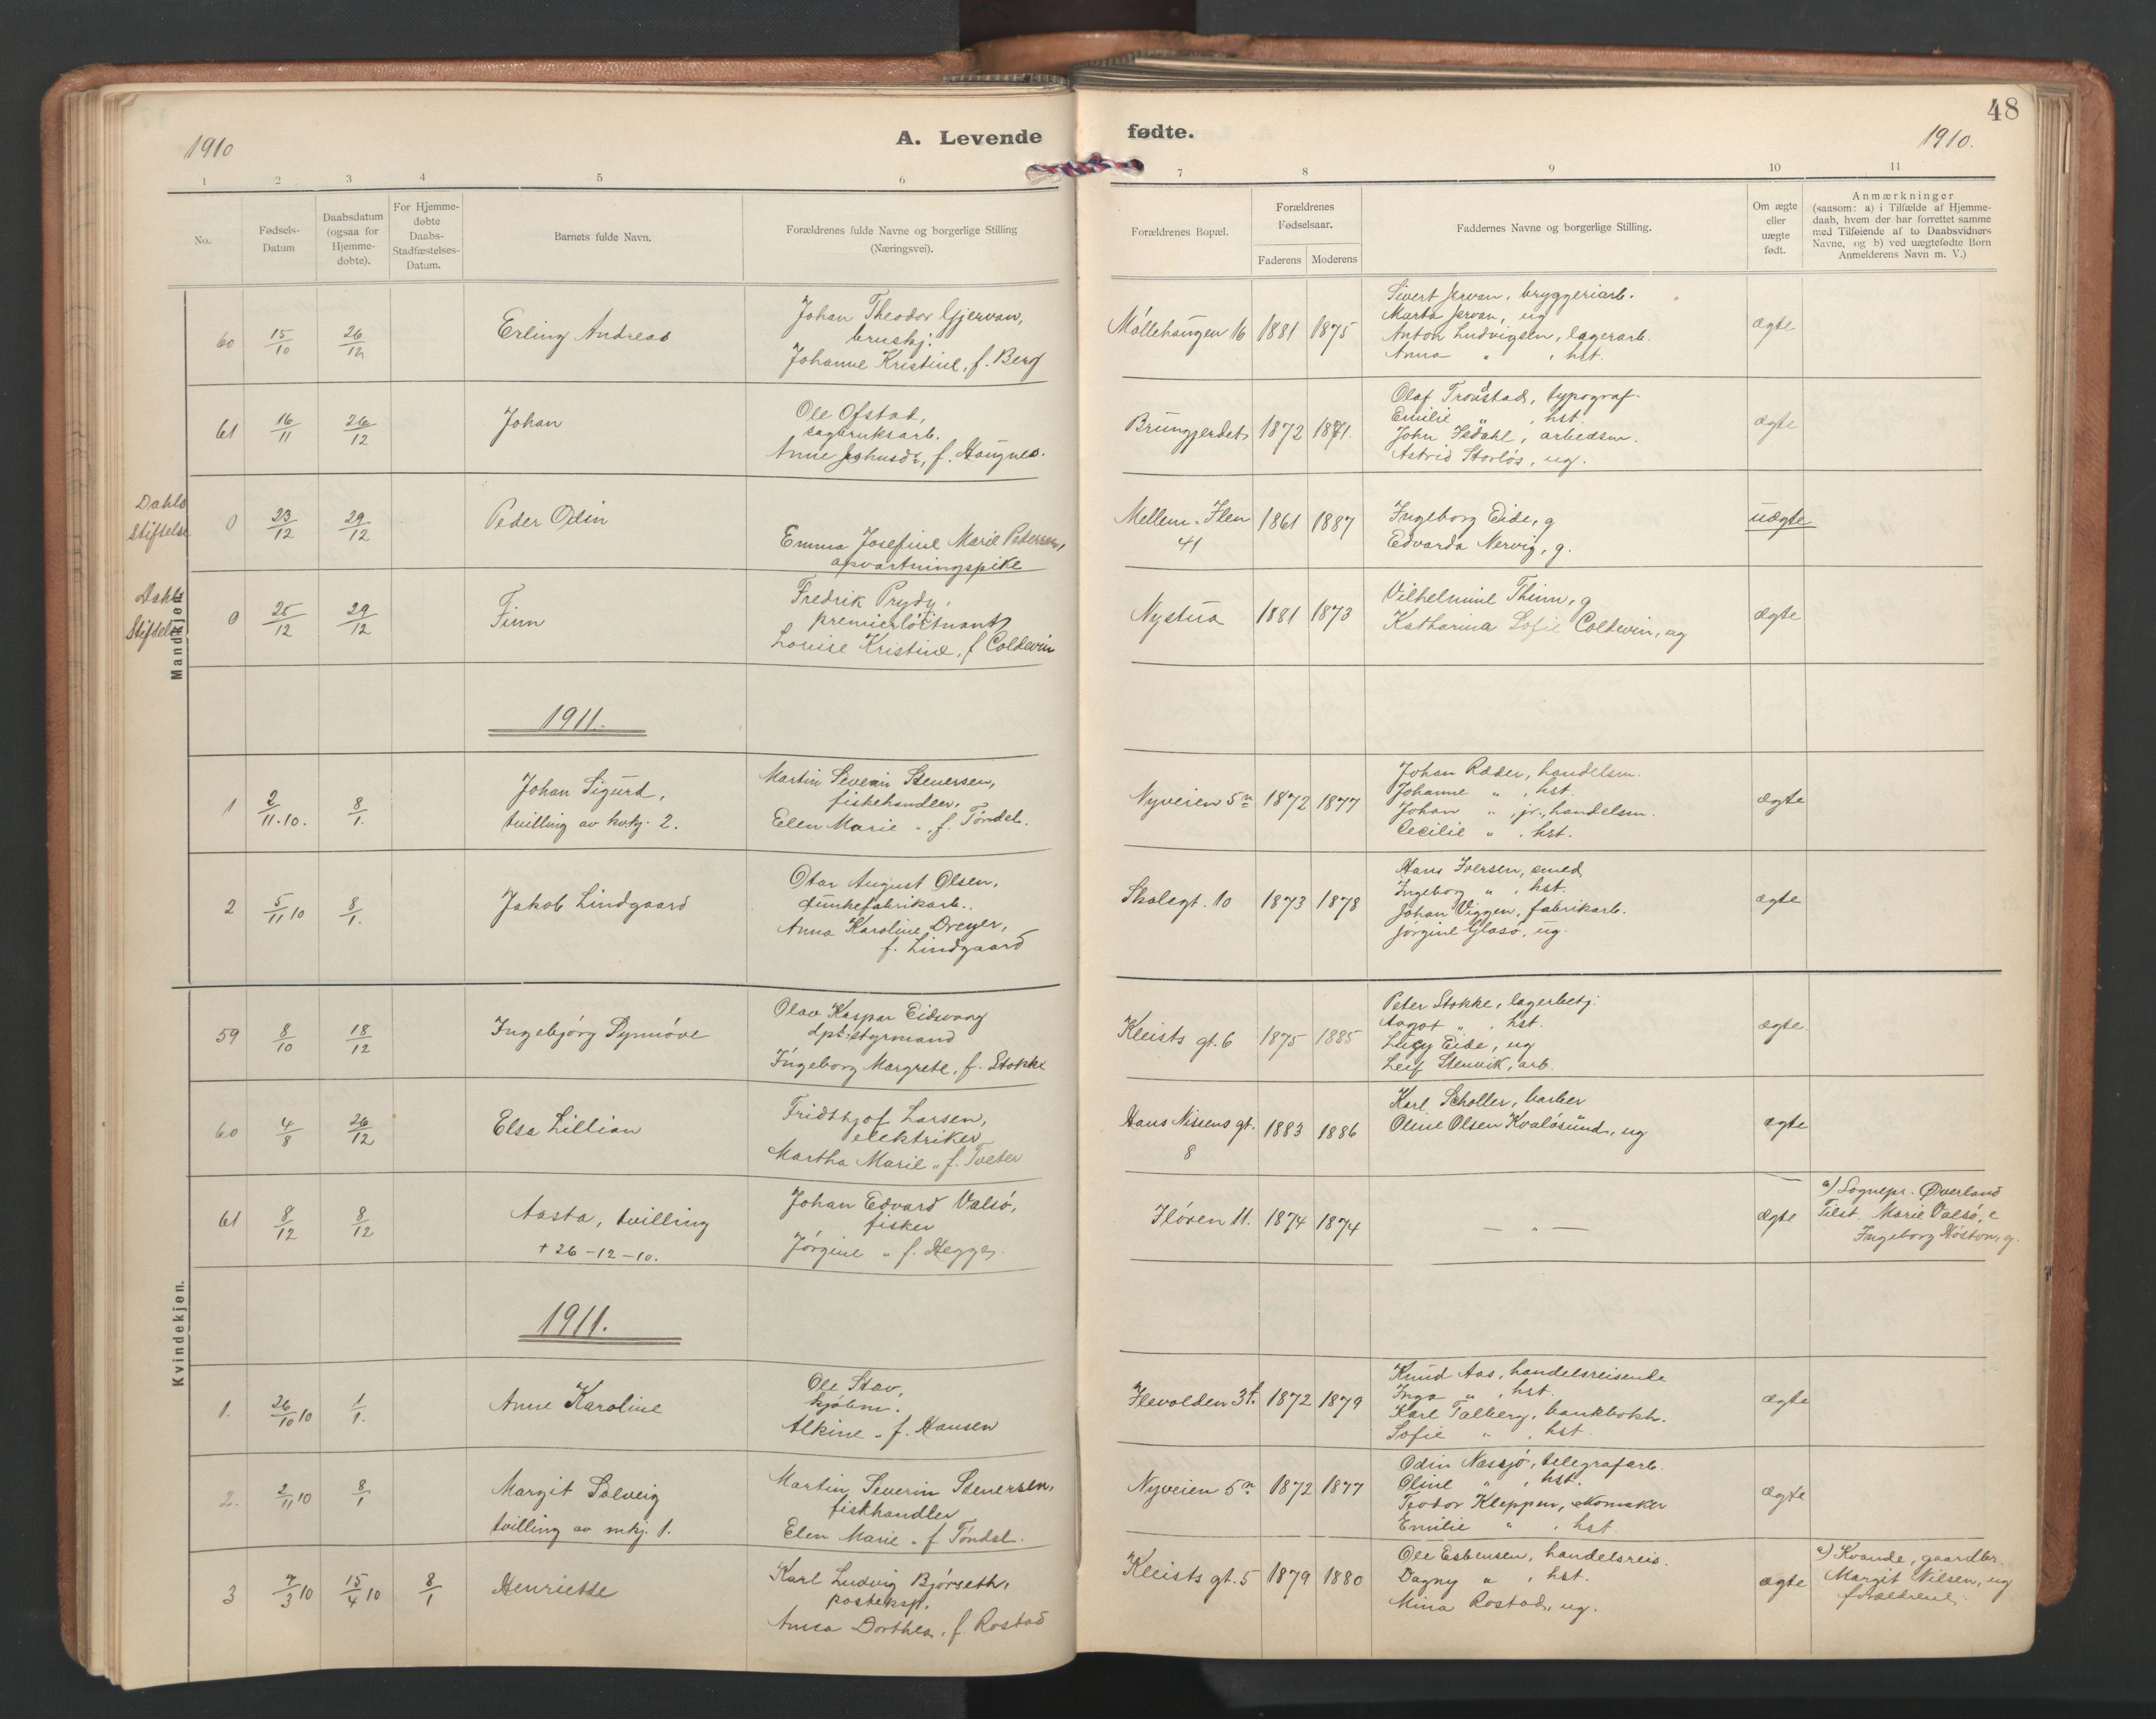 48
1910
A. Levende
fødte.
1910.
1 2 3 4 5 6 7 8 9 10 11
No.
Fødsels-
Datum
Daabsdatum
(ogsaa for
Hjemme-
døbte).
For Hjemme-
døbte
Daabs-
Stadfæstelses-
Datum.
Barnets fulde Navn.
Forældrenes fulde Navne og borgerlige Stilling
(Næringsvei).
Forældrenes Bopæl.
Forældrenes
Fødselsaar.
Faderens Moderens
Faddernes Navne og borgerlige Stilling.
Om ægte
eller
uægte
født.
Anmærkninger
(saasom: a) i Tilfælde af Hjemme-
daab, hvem der har forrettet samme
med Tilføiende af to Daabsvidners
Navne, og b) ved uægtefødte Børn
Anmelderens Navn m. V.)
Mandkjøn.
60 15/10 26/12 Erling Andreas
Johan Theodor Gjervan,
bruskj.
Johanne Kristine, f. Berg
Möllehaugen 16 1881 1875
Sivert Jervan, bryggeriarb.
Marta Jervan, ug
Anton Ludvigsen, lagerarb.
Anna " , hst.
ægte
61 16/11 26/12 Johan
Ole Ofstad,
sagbruksarb.
Anne f. Haugnes.
Brungjerdet 1872 1871.
Olaf Tronstad, typograf.
Emilie " , hst.
John Hedahl, arbedsm.
Astrid Storlös, ug.
ægte
Dahls
Stiftelse
0 23/12 29/12 Peder Odin
Emma Josefine Marie Petersen,
opvartningspike
Mellem-Ilen
41
1861 1887
Ingeborg Eide, g
Edvarda Nervig, g.
uægte
Dahls
Stiftelse
0 25/12 29/12 Finn
Fredrik Prydz,
premierlöitnant
Louise Kristine, f Coldevin
Nystua 1881 1873
Vilhelmine Thinn, g
Katharina Sofie Coldevin, ug
ægte
1911.
1 2/11.10. 8/1. Johan Sigurd,
tvilling av kvkj. 2.
Martin Severin Steuersen,
fiskehandler,
Elen Marie " f. Töndel.
Nyveien 5n 1872 1877
Johan Ræder, handelsm.
Johanne " , hst.
Johan " , jr., handelsm.
Cecilie " , hst.
ægte
2 5/11 10 8/1. Jakob Lindgaard
Otar August Olsen,
fabrikarb.
Anna Karoline Dreyer,
f. Lindgaard
Skolegt. 10 1873 1878
Hans Iversen, smed
Ingeborg " , hst.
Johan Viggen, fabrikarb.
Jörgine Glasö, ug.
ægte
Kvindekjøn.
59 8/10 18/12 Ingebjörg Synnöve
Olav Kaspar Eidsvaag
dpsk.styrmand
Ingeborg Margrete, f. Stokke
Kleists gt. 6 1875 1885
Peter Stokke, lagerbetj.
Aagot " , hst.
Lucy Eide, ug
Leif Stenvik, arb.
ægte
60 4/8 26/12 Elsa Lillian
Fridthjof Larsen,
elektriker
Martha Marie " f. Tveter
Hans Nissens gt.
8
1883 1886
Karl Scholler, barber
Oline Olsen Kvalösund, ug
ægte
61 8/12 8/12 Aasta, tvilling
+ 26-12-10.
Johan Edvard Valsö,
fisker
Jörgine " f. Hegge
Ilören 11. 1874 1874
— " —
ægte
a) Sognepr. Øverland
Tilst. Marie Valsö, e
Ingeborg Höston, g.
1911.
1. 26/10 10 1/1. Anne Karoline
Ole Stav,
kjöbm.
Alkine " f. Hansen
Ilevolden 3t. 1872 1879
Knud Aas, handelsreisende
Inga " , hst.
Karl Talberg, bankbokh.
Sofie " , hst.
ægte
2. 2/11 10 8/1 Margit Solveig
tvilling av mkj. 1.
Martin Severin Steuersen,
fiskhandler
Elen Marie " f Töndel.
Nyveien 5n 1872 1877
Odin Næssjö, telegrafarb.
Oline " , hst.
Teodor Kleppen, skomaker
Emilie " , hst.
ægte
3 7/3 10 15/4 10 8/1 Henriette
Karl Ludvig Björseth,
posteksp.
Anna Dorthea, f Rostad
Kleists gt. 5 1879 1880
Ole Esbensen, handelsreis.
Dagny " , hst.
Mina Rostad, ug.
ægte
a) Kvande, gaardbr.
Margit Nilsen, ug
forældrene.